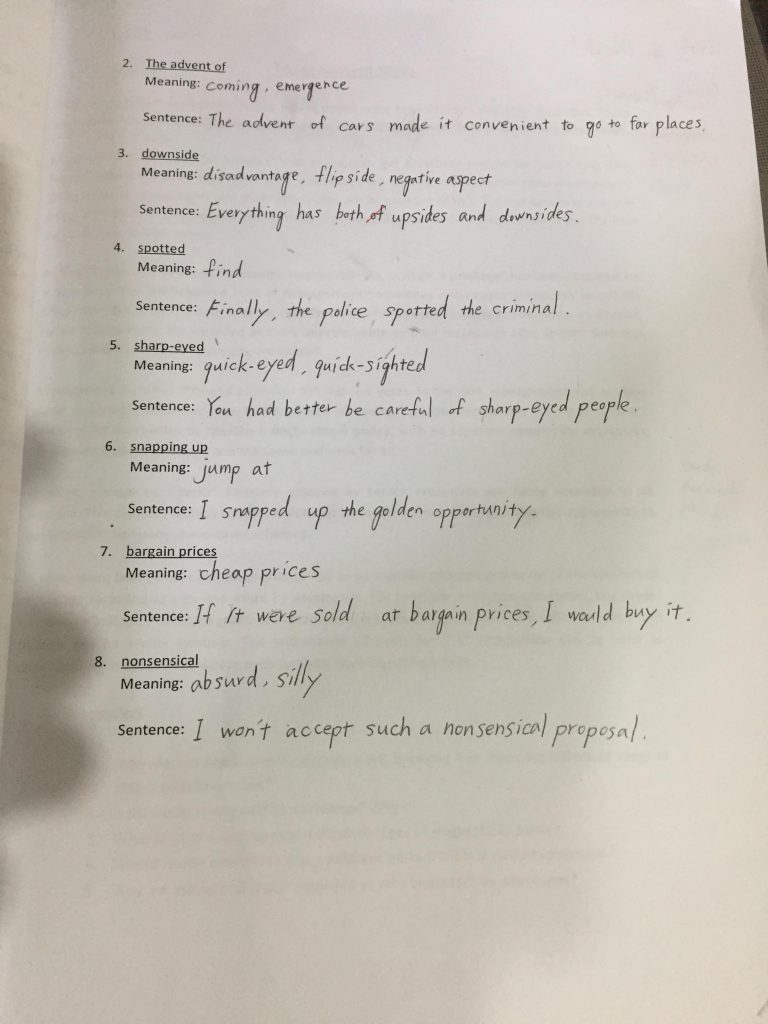 2. The advent of
Meaning: coming, emergence
Sentence: The advent of cars made it convenient to go to far places.
3. downside
Meaning: disadvantage, flip side, negative aspect
Sentence: Everything has both of upsides and downsides.
4. spotted
Meaning: find
Sentence: Finally, the police spotted the criminal.
5. sharp-eyed
Meaning: quick-eyed, quick-sighted
Sentence: You had better be careful of sharp-eyed people.
6. snapping up
Meaning: jump at
Sentence: I snapped up the golden opportunity.
7. bargain prices
Meaning: cheap prices
Sentence: If it were sold at bargain prices, I would buy it.
8. nonsensical
Meaning: absurd, silly
Sentence: I won't accept such a nonsensical proposal.